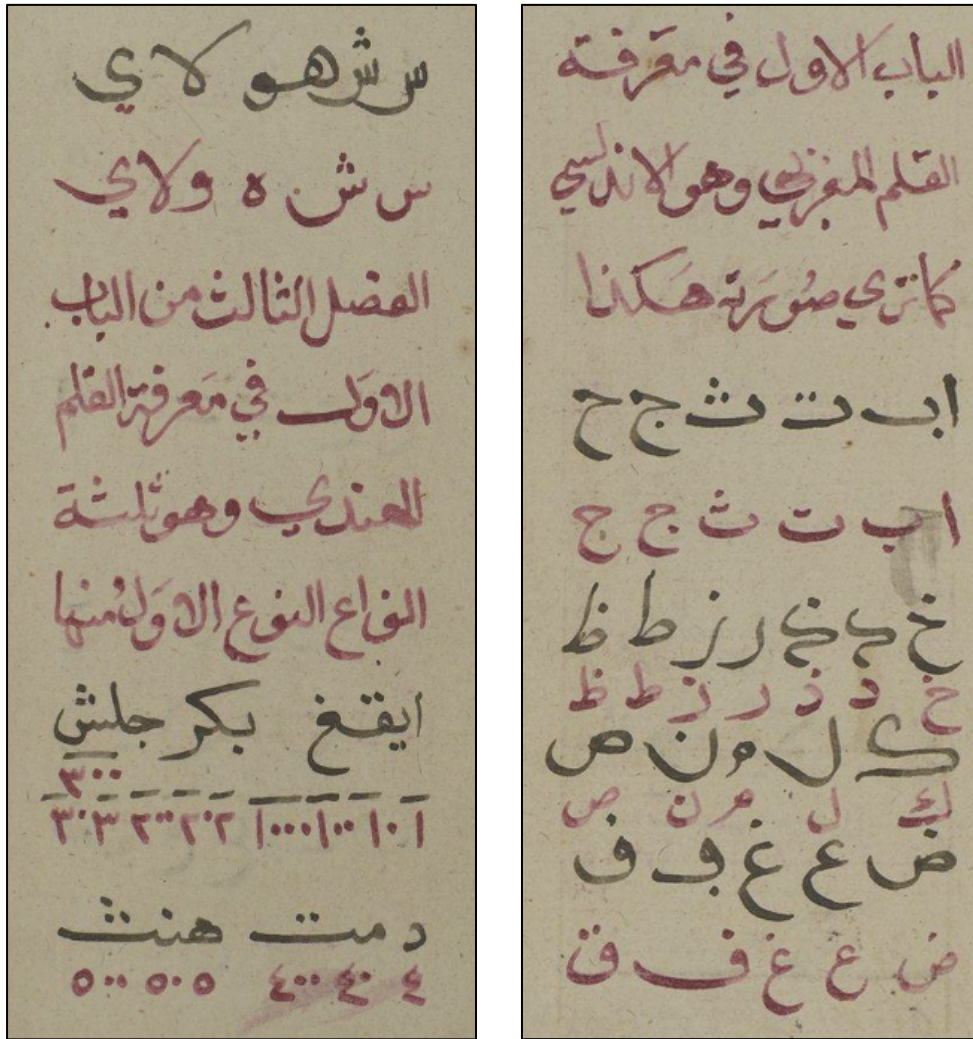 الباب الاول في معرفة
القلم المغربي وهو الاندلسي
كما تري صورته هكذا
ا ب ت ث ج ح
ا ب ت ث ج ج
خ د ذ ر ز ط ظ
خ د ذ ر ز ط ظ
ك ل م ن ص
ك ل م ن ص
ض ع غ ڢ ف
ض ع غ ف ق
س ش هو لا ي
س ش ه و لا ي
الفصل الثالث من الباب
الاول في معرفة القلم
الهندي وهو ثلثة
انواع النوع الاول منها
ايقغ بكر جلش
٣٠٠
١ ١٠ ١٠٠ ١٠٠٠ ٢ ٢٠ ٢٠٠ ٣ ٣٠
د مت هنث
٤ ٤٠ ٤٠٠ ٥ ٥٠ ٥٠٠